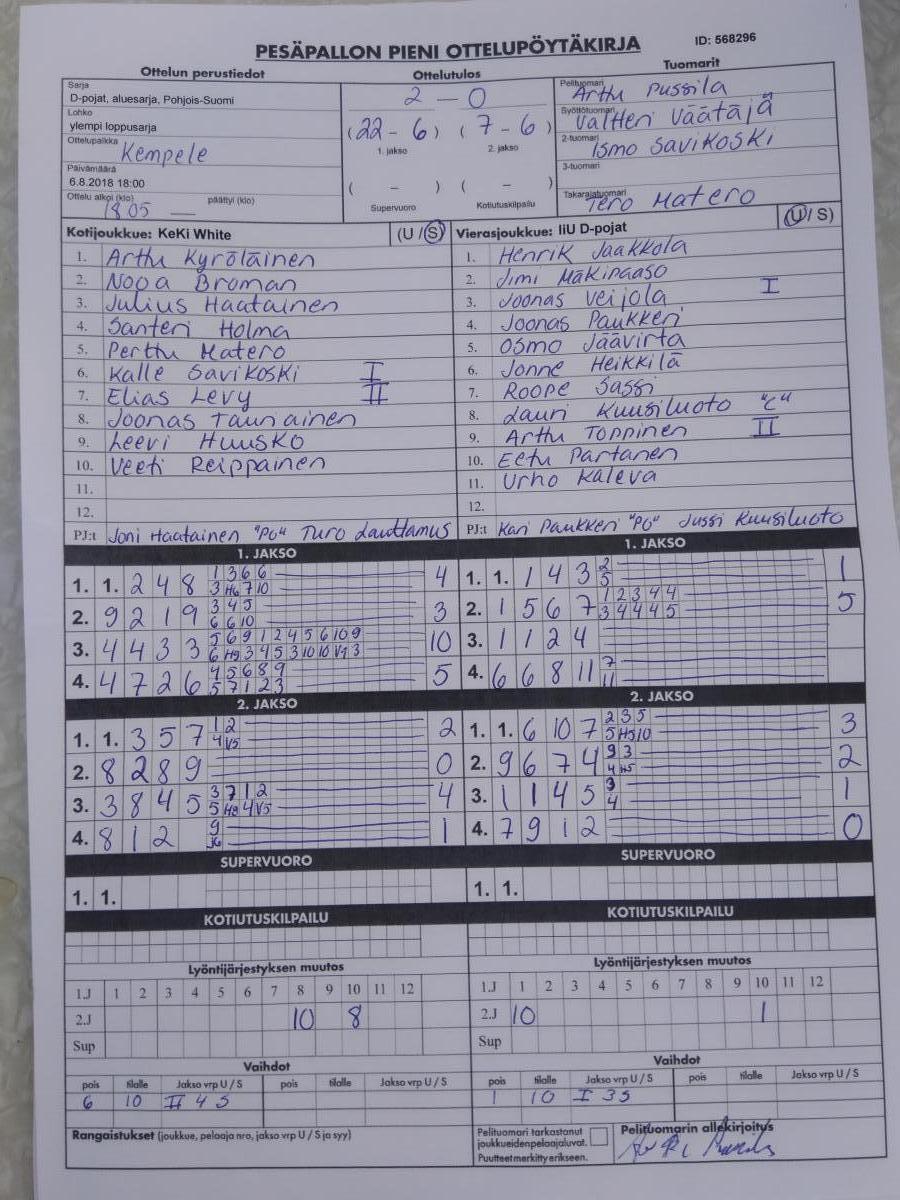 PESÄPALLON PIENI OTTELUPÖYTÄKIRJA
ID: 568296
Ottelun perustiedot
Ottelutulos
Tuomarit
Sarja
D-pojat, aluesarja, Pohjois-Suomi
Lohko
ylempi loppusarja
Ottelupaikka
Kempele
Päivämäärä
6.8.2018 18:00
Ottelu alkoi (klo) päättyi (klo)
18 05 —
2 – 0
(22 – 6) (7 – 6)
1. jakso 2. jakso
( – ) ( – )
Supervuoro Kotiutuskilpailu
Pelituomari
Arttu Pussila
Syöttötuomari
Valtteri Väätäjä
2-tuomari
Ismo Savikoski
3-tuomari
Takarajatuomari
Tero Matero
Kotijoukkue: KeKi White (U / S)
1. Arttu Kyröläinen
2. Nooa Broman
3. Julius Haatainen
4. Santeri Holma
5. Perttu Matero
6. Kalle Savikoski I
7. Elias Levy II
8. Joonas Tauriainen
9. Leevi Huusko
10. Veeti Reippainen
11.
12.
PJ:t Joni Haatainen "PO" Turo Lauttamus
Vierasjoukkue: IiU D-pojat (U / S)
1. Henrik Jaakkola
2. Jimi Mäkipaaso
3. Joonas Veijola I
4. Joonas Paukkeri
5. Osmo Jäävirta
6. Jonne Heikkilä
7. Roope Sassi
8. Lauri Kuusiluoto "C"
9. Arttu Toppinen II
10. Eetu Partanen
11. Urho Kaleva
12.
PJ:t Kari Paukkeri "PO" Jussi Kuusiluoto
1. JAKSO
1. 1. 2 4 8 1 3 6 6 4
3 H6 7 10
2. 9 2 1 9 3 4 5 3
6 6 10
3. 4 4 3 3 5 6 9 1 2 4 5 6 10 9 10
6 H9 3 4 5 3 10 10 V1 3
4. 4 7 2 6 4 5 6 8 9 5
5 7 1 2 3
1. JAKSO
1. 1. 1 4 3 2 1
5
2. 1 5 6 7 1 2 3 4 4 5
3 4 4 4 5
3. 1 1 2 4
4. 6 6 8 11 7
11
2. JAKSO
1. 1. 3 5 7 1 2 2
4 V5
2. 8 2 8 9 0
3. 3 8 4 5 3 7 1 2 4
5 H8 4 V5
4. 8 1 2 9 1
2. JAKSO
1. 1. 6 10 7 2 3 5 3
5 H5 10
2. 9 6 7 4 9 3 2
4 H5
3. 1 1 4 5 3 1
4
4. 7 9 1 2 0
SUPERVUORO
1. 1.
SUPERVUORO
1. 1.
KOTIUTUSKILPAILU
KOTIUTUSKILPAILU
Lyöntijärjestyksen muutos
1.J 1 2 3 4 5 6 7 8 9 10 11 12
2.J 10 8
Sup
Lyöntijärjestyksen muutos
1.J 1 2 3 4 5 6 7 8 9 10 11 12
2.J 10 1
Sup
Vaihdot
pois tilalle Jakso vrp U / S pois tilalle Jakso vrp U / S
6 10 II 4 S
Vaihdot
pois tilalle Jakso vrp U / S pois tilalle Jakso vrp U / S
1 10 I 3 S
Rangaistukset (joukkue, pelaaja nro, jakso vrp U / S ja syy)
Pelituomari tarkastanut
joukkueidenpelaajaluvat.
Puutteet merkitty erikseen.
Pelituomarin allekirjoitus